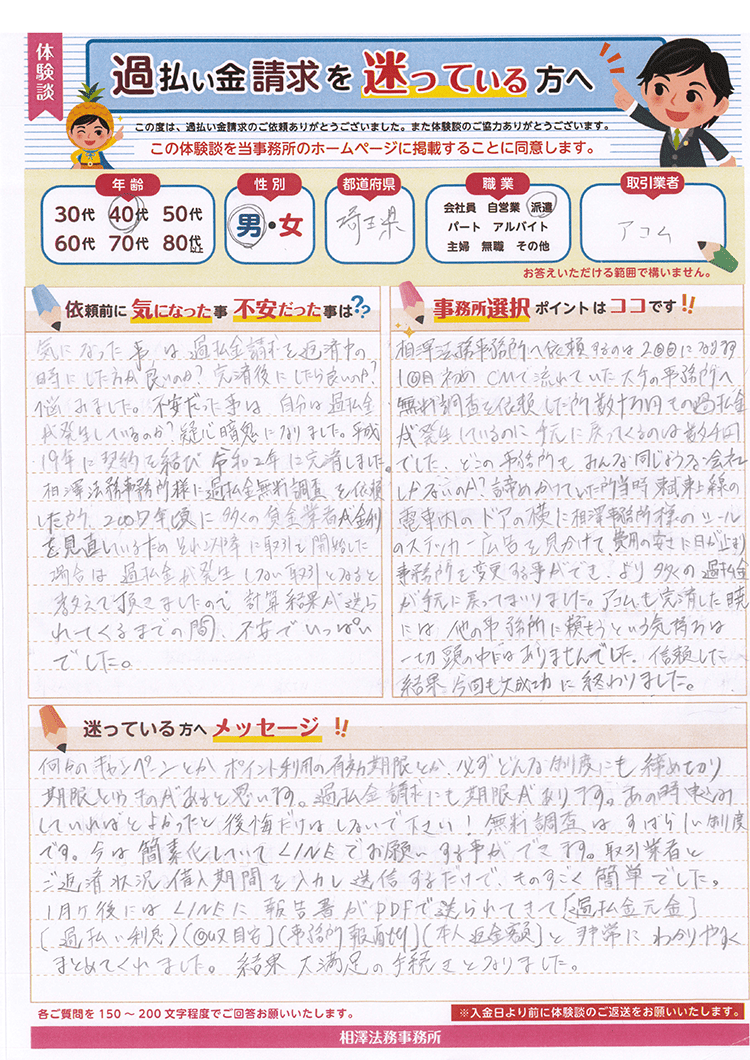 体験談
過払い金請求を迷っている方へ
この度は、過払い金請求のご依頼ありがとうございました。また体験談のご協力ありがとうございます。
この体験談を当事務所のホームページに掲載することに同意します。
年齢
30代 40代 50代
60代 70代 80代以上
性別
男・女
都道府県
埼玉県
職業
会社員 自営業 派遣
パート アルバイト
主婦 無職 その他
取引業者
アコム
お答えいただける範囲で構いません。
依頼前に気になった事 不安だった事は??
気になった事は過払金請求を返済中の
時にした方が良いのか?完済後にしたら良いのか?
悩みました。不安だった事は自分は過払金
が発生しているのか?疑心暗鬼になりました。平成
19年に契約を結び令和2年に完済しました。
相澤法務事務所様に過払金無料調査を依頼
した所、2007年頃に多くの貸金業者が金利
を見直しいるため それ以降に取引を開始した
場合は過払金が発生しない取引となると
教えて頂きましたので、計算結果が送ら
れてくるまでの間、不安でいっぱい
でした。
事務所選択ポイントはココです!!
相澤法務事務所へ依頼するのは2回目になります
1回目初め CMで流れていた大手の事務所へ
無料調査を依頼した所数十万円もの過払金
が発生しているのに手元に戻ってくるのは数千円
でした。どこの事務所もみんな同じような会社
しかないのか?諦めかけていた所当時 東武東上線の
電車内のドアの横に相澤事務所様のシール
のステッカー広告を見かけて 費用の安さに目が止まり
事務所を変更する事ができ、より多くの過払金
が手元に戻ってまいりました。アコムも完済した暁
には、他の事務所に頼もうという気持ちは
一切頭の中にはありませんでした。信頼した
結果 今回も大成功に終わりました。
迷っている方へメッセージ!!
何かのキャンペーンとか ポイント利用の有効期限とか、必ずどんな制度にも締めきり
期限というものがあると思います。過払金請求にも期限があります。あの時申込み
していればとよかったと後悔だけはしないで下さい!無料調査はすばらしい制度
です。今は簡素化していてLINEでお願いする事ができます。取引業者と
ご返済状況 借入期間を入力し送信するだけで、ものすごく簡単でした。
1ヶ月後にはLINEに報告書がPDFで送られてきて〔過払金元金〕
〔過払い利息〕〔回収目安〕〔事務所報酬〕〔本人返金額〕と非常にわかりやすく
まとめてくれました。結果 大満足の手続きとなりました。
各ご質問を150～200文字程度でご回答お願いいたします。
※入金日より前に体験談のご返送をお願いいたします。
相澤法務事務所